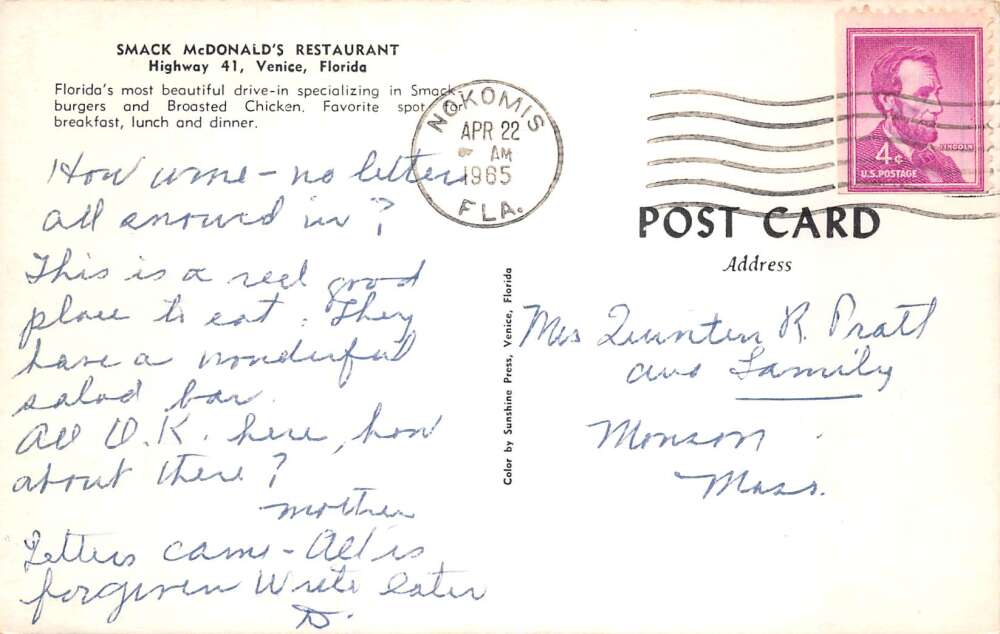 SMACK McDONALD'S RESTAURANT
Highway 41, Venice, Florida
Florida's most beautiful drive-in specializing in Smack-
burgers and Broasted Chicken. Favorite spot for
breakfast, lunch and dinner.
How come - no letters
all snowed in?
This is a real good
place to eat. They
have a wonderful
salad bar.
All O.K. here, how
about there?
Mother
Letters came - All is
forgiven Write later
D.
NOKOMIS
APR 22
AM
1965
FLA.
LINCOLN
4¢
U.S. POSTAGE
POST CARD
Address
Mrs Quinten R. Pratt
and Family
Monson
Mass.
Color by Sunshine Press, Venice, Florida